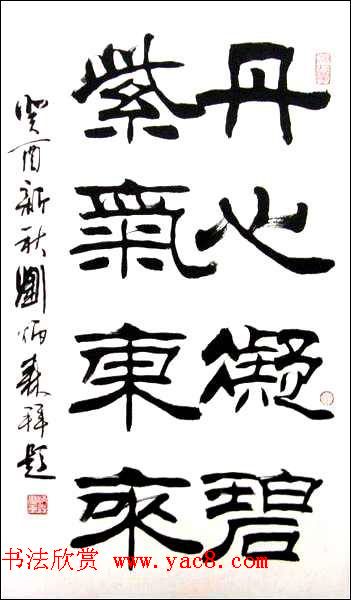 丹心凝碧
紫氣東來
癸酉新秋劉炳森拜題
书法欣赏 www.yac8.com